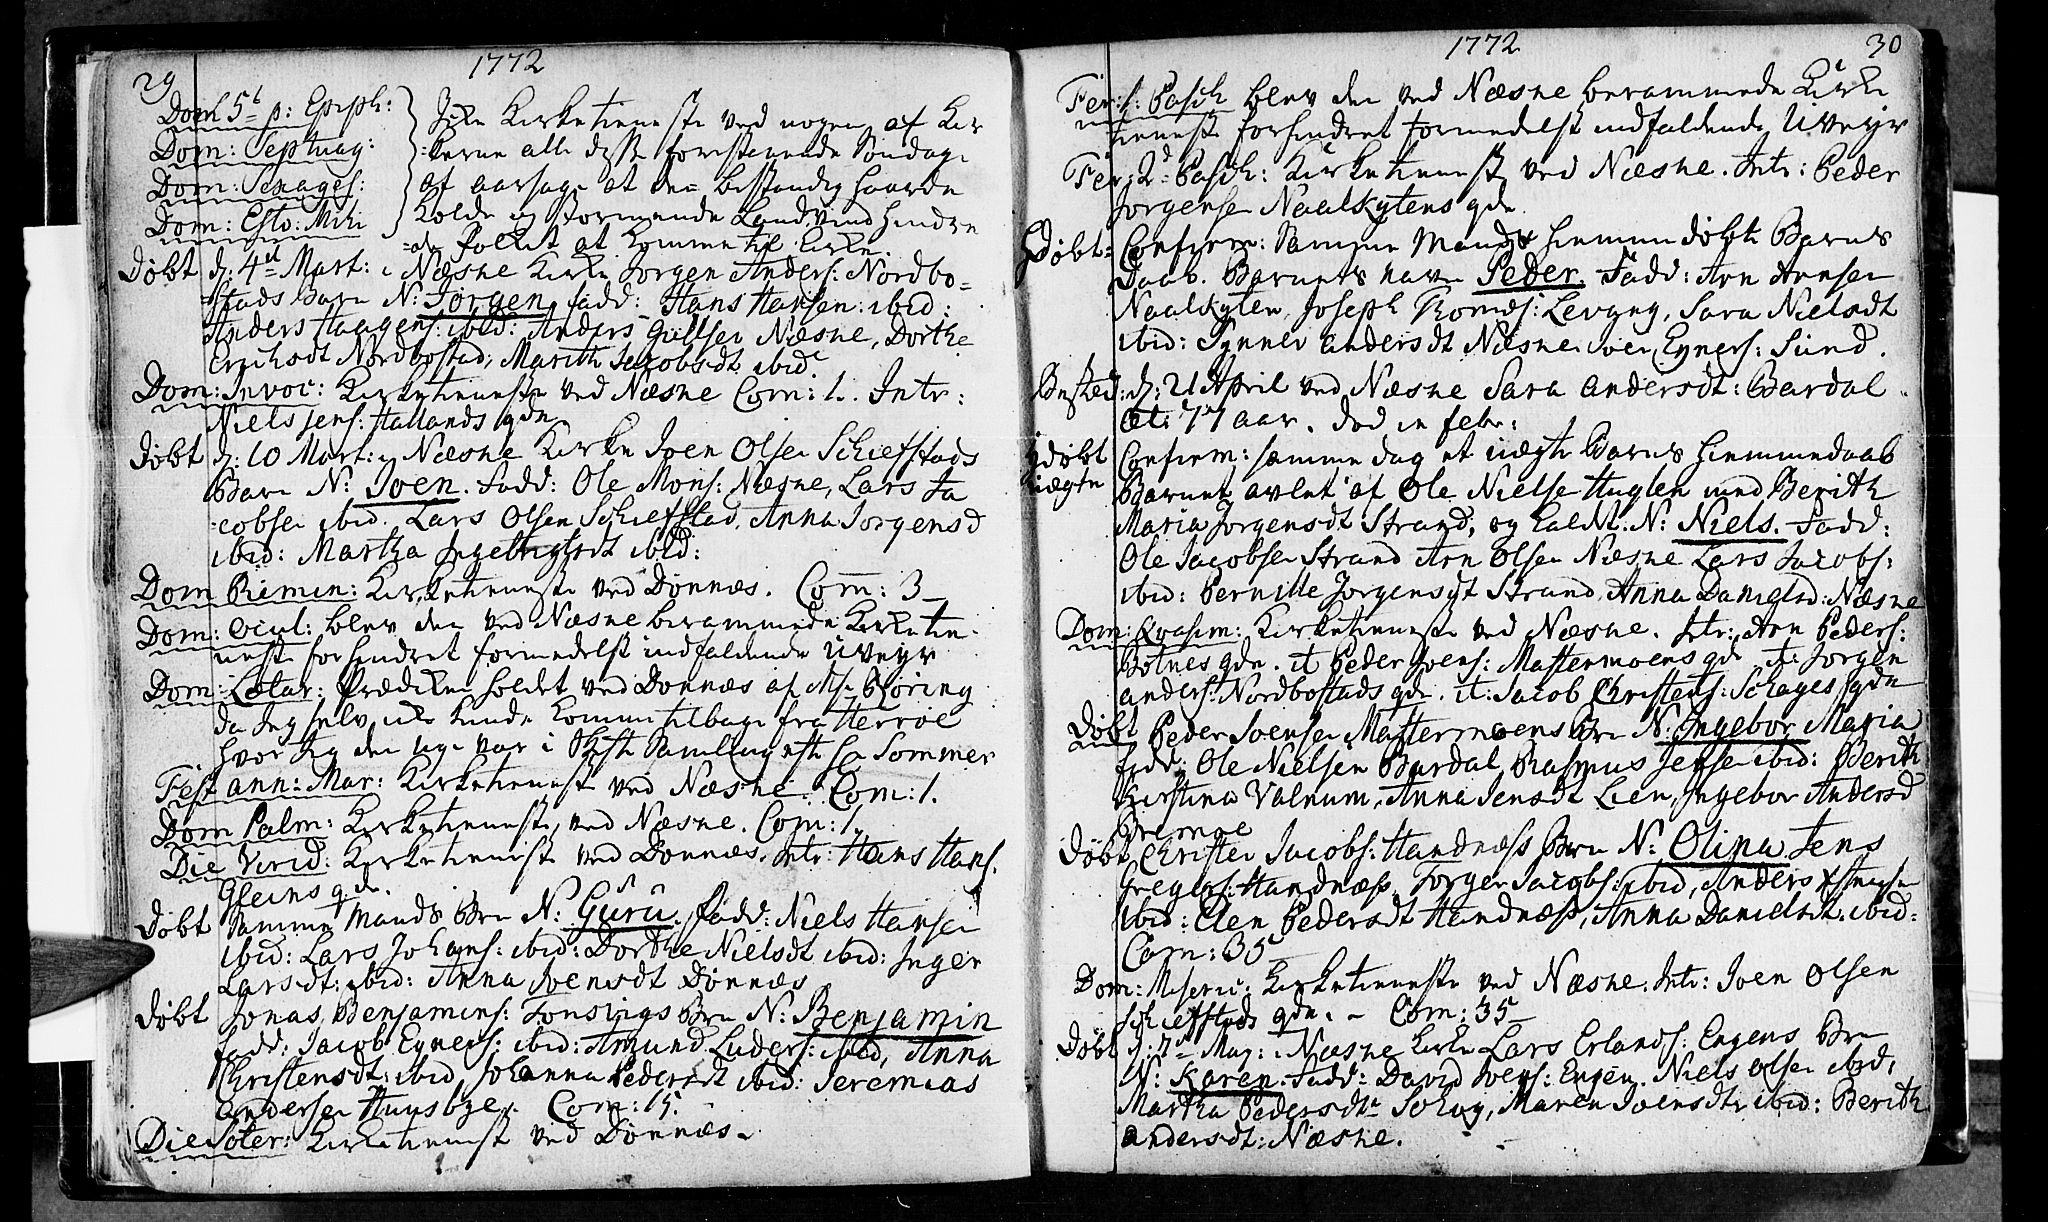 29
1772
Dom 5t p: Epiph:
Dom: Septuag:
Dom: Sexages:
Dom: Esto: Mihi
Icke Kircketieneste ved nogen af Kir
=kerne alle disse forestaaende Søndage
af aarsage at den bestandig haarde
kolde og stormende Landvind hindre
=de folket at komme til kirken.
Døbt d: 4de Mart: i Næsne Kirke Jørgen Anders: Nordbo=
stads Barn N: Jørgen. fadd: Hans Hansen: ibid:
Anders Haagens: ibid: Anders Gullsen Næsne, Dorthe
Erichsdt Nordbostad, Marith Jacobsdt ibid.
Dom: Invoc: Kircketieneste ved Næsne Com: 1. Intr:
Niels Jens: Hallands qde
Døbt d: 10 Mart: i Næsne Kirke Joen Olsen Schiefstads
Barn N: Joen. Fadd: Ole Mons: Næsne, Lars Ja
=cobsen ibid. Lars Olsen Schiefstad, Anna Jørgensd
ibid: Martha Ingebrigtsdt ibid:
Dom Remin: Kircketieneste ved Dønnæs. Com: 3
Dom: Ocul: blev den ved Næsne berammede Kircketie-
neste forhindret formedelst indfaldende Uveyr
Dom: Lætar: Prædiken holdet ved Dønnæs af Mr Børing
da Jeg selv icke kunde komme tilbage fra Herrøe
hvor Jeg den uge var i Skifte Samling efter Hr Sommer
Fest ann: Mar: Kircketieneste ved Næsne. Com: 1.
Dom Palm: Kircketieneste ved Næsne. Com: 1.
Die Virid: Kircketieneste ved Dønnæs. Intr: Hans Hans.
Gleins qde.
Døbt Samme Mands Brn N: Guru. Fadd: Niels Hansen
ibid: Lars Johans: ibid: Dorthe Nielsdt ibid: Inger
Larsdt: ibid: Anna Joensdt Dønnæs
Døbt Jonas Benjamins: Tønsings Brn N: Benjamin
fadd: Jacob Eyners: ibid: Amund Luders: ibid, Anna
Christensdt: ibid Johanna Pedersdt ibid: Jeremias
Andersen Huusbye. Com: 15.
Die Soter: Kircketieneste ved Dønnæs.
1772
30
Fer: 1: Pasch blev den ved Næsne berammede Kircke
tieneste forhindret formedelst indfaldende Uveyr
Fer: 2d Pasch: Kircketieneste ved Næsne. Intr: Peder
Jørgensen Naalskytens qde.
Hdøbt= Confirm: Samme Mands hiemmedøbte Barns
Daab. Barnets navn Peder. Fadd: Arn Arnsen
Naalskyten, Joseph Thoms: Levang, Sara Nielsdt
ibid: Synnev andersdt Næsne Iver Eyners: Sund.
Begrav: d: 21 April ved Næsne Sara andersdt: Bardal
æt: 77 aar. død in febr:
Hdøbt
uægte Confirm: samme dag et uægte Barns hiemmedaab
Barnet avlet af Ole Nielsen Huglen med Berith
Maria Jørgensdt Strand, og kaldt N: Niels. Fadd:
Ole Jacobsen Strand Arn Olsen Næsne Lars Jacobs:
ibid: Pernille Jørgensdt Strand, Anna Danielsd: Næsne
Dom: Qvasim: Kircketieneste ved Næsne. Intr: Arn Peders:
Botnes qde. it Peder Ivens: Mastermoens qde it: Jørgen
anders: Nordbostads qde. it: Jacob Christens: Schages qde
Døbt Peder Ivensen Mastermoens Brn N: Ingebor Maria
fadd: Ole Nielsen Bardal, Rasmus Jensen ibid: Berith
Kirstina Valnum, Anna Jensdt Lien, Ingebor Andersd
Bremoe
Døbt Christen Jacobs: Handnæss Brn N: Olina. Jens
Gregers: Handnæss. Torger Jacobs: ibid, Anders
ibid: Elen Pedersdt Handnæss, Anna Danielsdt. ibid:
Com: 35
Dom: Miseric: Kircketieneste ved Næsne. Intr: Joen Olsen
Schiefstads qde. - Com: 35
Døbt d: 7de May: i Næsne kirke Lars Erlands: Engens Brn
N: Karen. Fadd: David Ivens: Engen. Niels Olsen ibid,
Martha Pedersdtr Schog, Maren Ivensdtr ibid: Berith
andersdt: Næsne.